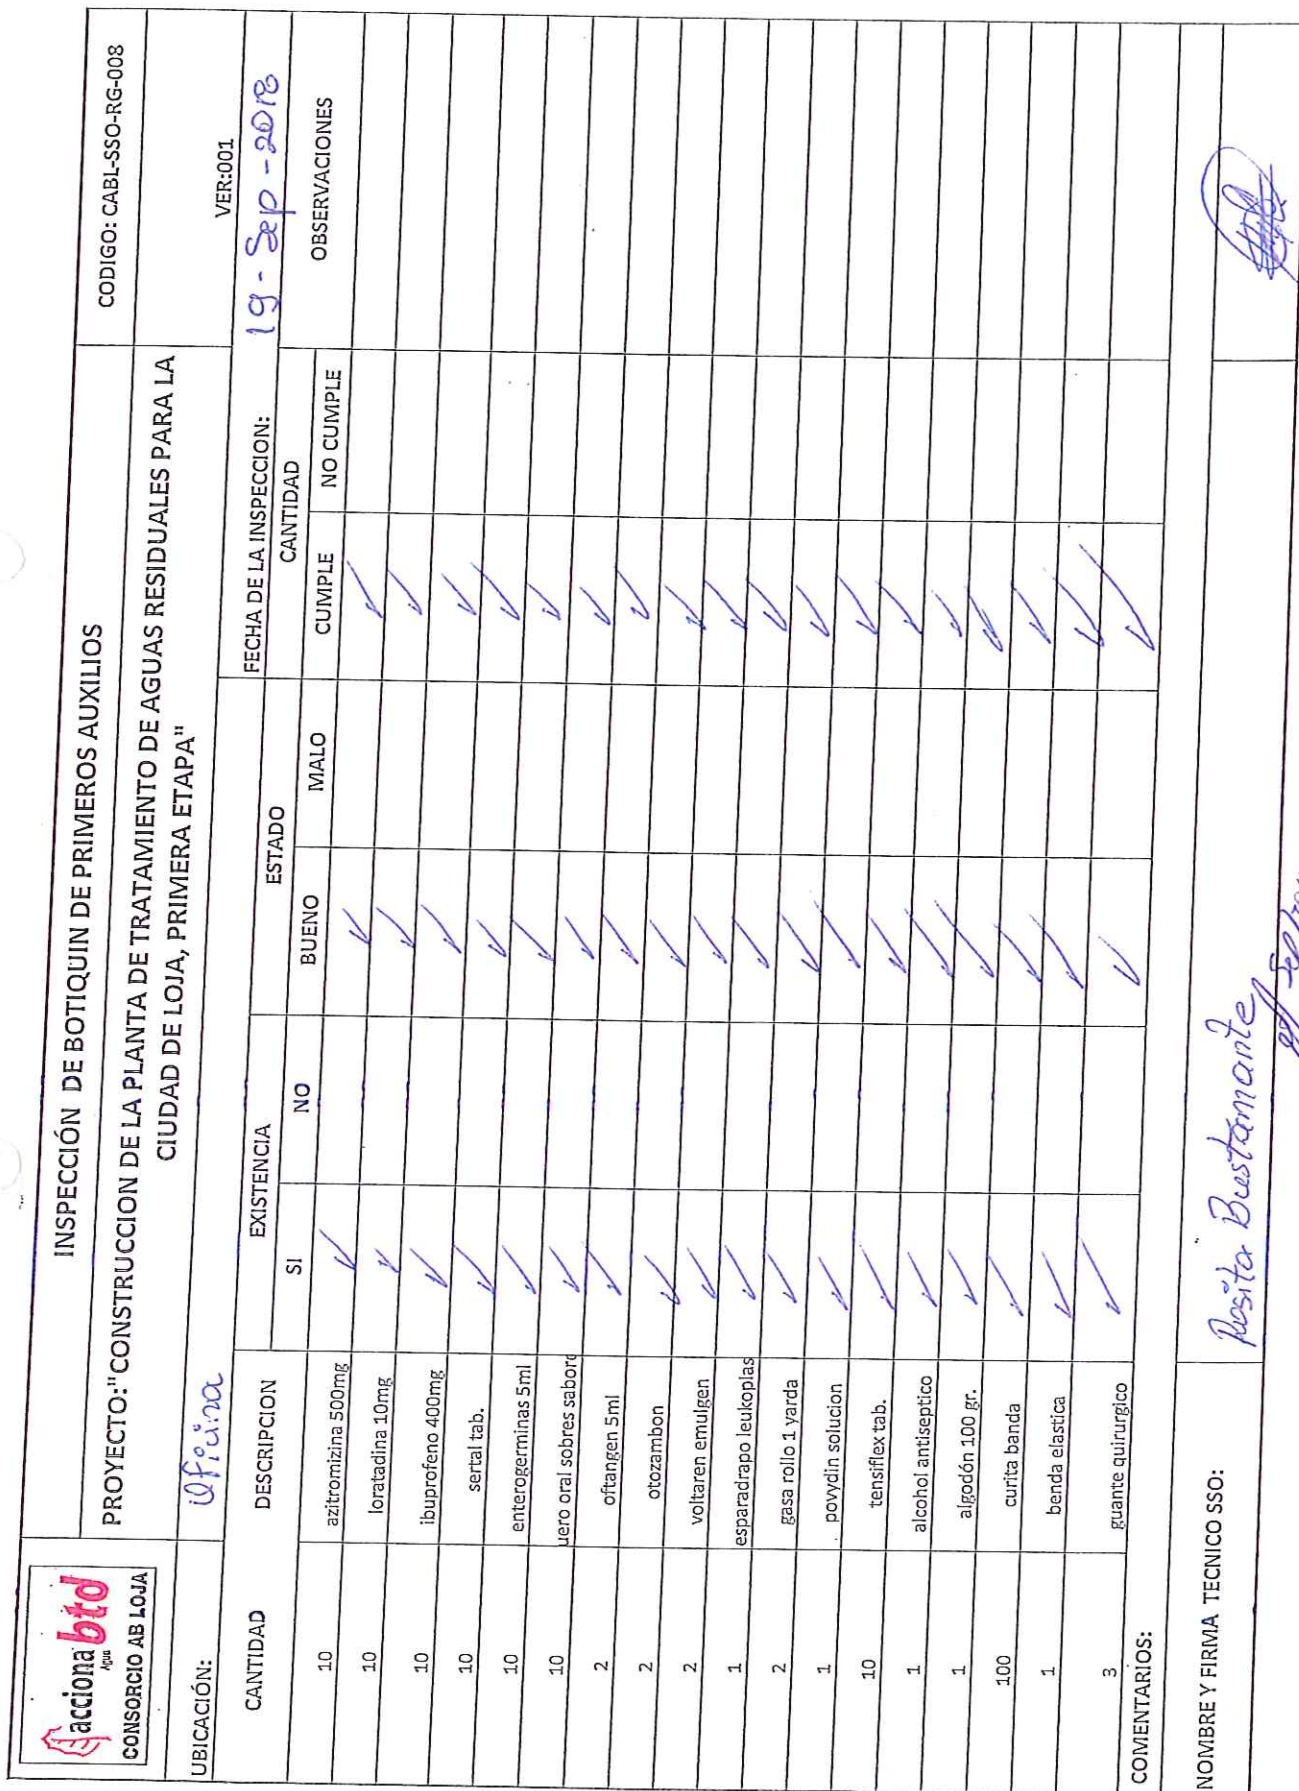 acciona btd
Agua
CONSORCIO AB LOJA
INSPECCIÓN DE BOTIQUIN DE PRIMEROS AUXILIOS
CODIGO: CABL-SSO-RG-008
PROYECTO:"CONSTRUCCION DE LA PLANTA DE TRATAMIENTO DE AGUAS RESIDUALES PARA LA
CIUDAD DE LOJA, PRIMERA ETAPA"
VER:001
UBICACIÓN: Oficina
FECHA DE LA INSPECCION: 19-Sep-2018
CANTIDAD DESCRIPCION EXISTENCIA ESTADO CANTIDAD OBSERVACIONES
SI NO BUENO MALO CUMPLE NO CUMPLE
10 azitromizina 500mg ✓ ✓ ✓
10 loratadina 10mg ✓ ✓ ✓
10 ibuprofeno 400mg ✓ ✓ ✓
10 sertal tab. ✓ ✓ ✓
10 enterogerminas 5ml ✓ ✓ ✓
10 uero oral sobres sabore ✓ ✓ ✓
2 oftangen 5ml ✓ ✓ ✓
2 otozambon ✓ ✓ ✓
2 voltaren emulgen ✓ ✓ ✓
1 esparadrapo leukoplas ✓ ✓ ✓
2 gasa rollo 1 yarda ✓ ✓ ✓
1 povydin solucion ✓ ✓ ✓
10 tensiflex tab. ✓ ✓ ✓
1 alcohol antiseptico ✓ ✓ ✓
1 algodón 100 gr. ✓ ✓ ✓
100 curita banda ✓ ✓ ✓
1 benda elastica ✓ ✓ ✓
3 guante quirurgico ✓ ✓ ✓
COMENTARIOS:
NOMBRE Y FIRMA TECNICO SSO: Rosita Bustamante